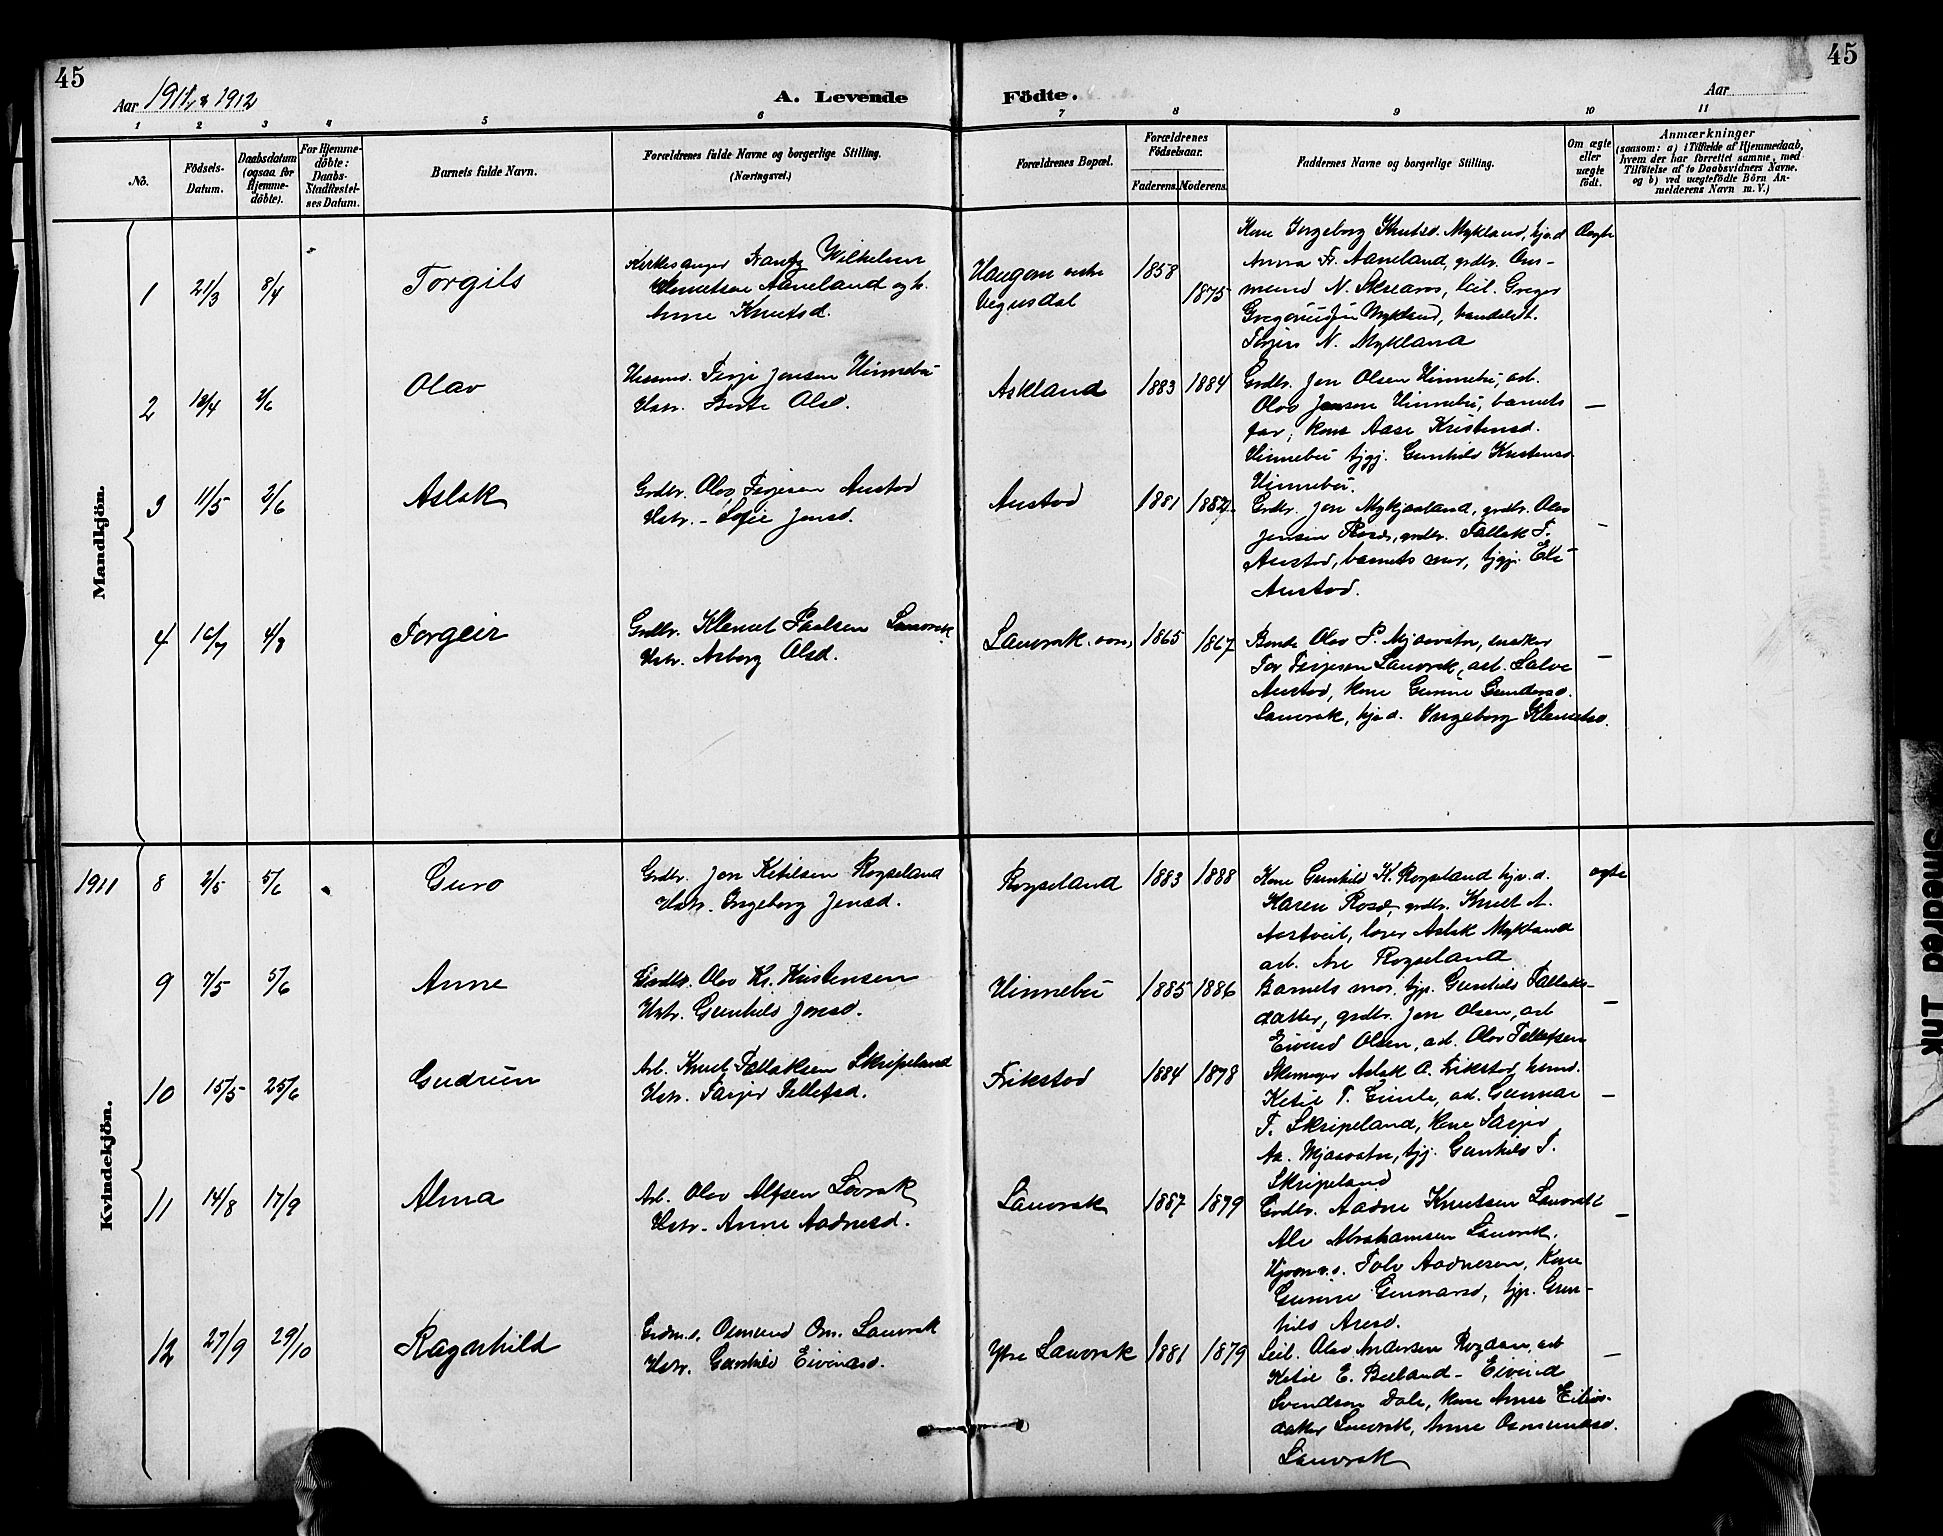 45
45
Aar 1911 & 1912
A. Levende
Födte.
Aar
1 2 3 4 5 6 7 8 9 10 11
No.
Födsels-
Datum.
Daabsdatum
(ogsaa for
Hjemme-
döbte).
For Hjemme-
döbte:
Daabs-
Stadfæstel-
ses Datum.
Barnets fulde Navn.
Forældrenes fulde Navne og borgerlige Stilling.
(Næringsvei.)
Forældrenes Bopæl.
Forældrenes
Födselsaar.
Faderens. Moderens.
Faddernes Navne og borgerlige Stilling.
Om ægte
eller
uægte
födt.
Anmærkninger
(saasom: a) i Tilfælde af Hjemmedaab,
hvem der har forrettet samme, med
Tilföielse af to Daabsvidners Navne,
og b) ved uægtefödte Börn An-
melderens Navn m. V.)
Mandkjön.
1 21/3 8/4 Torgils
Kirkesanger Wilhelm
Knutsen Aaneland og h.
Anne Knutsd.
Haugom
Vegusdal
1858 1875
Kone Ingeborg Knutsd. Mykland,
Anna Fr. Aaneland, grdbr. Os-
mund N. Skreros, Greger
Mykland,
N. Mykland
Aegte
2 18/4 2/6 Olav
Terje Jensen Hinnebu
Hstr. Berte Olsd.
Askland
1883 1884
Grdbr. Jon Olsen Hinnebu, arb.
Olav Jensen Hinnebu, barnets
far, kone Aase Kristensd.
Hinnebu tjgj. Gunhild Kristensd.
Hinnebu.
—
3 11/5 2/6 Aslak
Grdbr. Olav Terjesen Austad
Hstr. - Sofie Jensd.
Austad
1881 1882
Grdbr. Jon Mykjaaland, grdbr. Olav
Jensen Rosæ, grdbr. Tallak T.
Austad, barnets mor, tjgj. Eli
Austad.
—
4 16/7 4/8 Torgeir
Grdbr. Klemet Paalsen Lauvrak
Hstr. Asborg Olsd.
Lauvrak
1865 1867
Bonde Olav P. Mjaavatn,
Tor Terjesen Lauvrak, arb. Salve
Austad, kone Gunne Gundersd.
Lauvrak, Ingeborg Klemetsd.
—
1911
Kvindekjön.
8 2/5 5/6 Guro
Grdbr. Jon Ketilsen Røyseland
Hstr. Ingeborg Jensd.
Røyseland
1883 1888
Kone Gunhild K. Røyseland
Karen Rosæ, grdbr. Knut A.
lærer Aslak Mykland
arb. Are Røyseland
ægte
9 7/5 5/6 Anne
Grdbr. Olav Kr. Kristensen
Hstr. Gunhild Jonsd.
Hinnebu
1885 1886
Barnets mor, tjp. Gunhild Tallaks-
datter, grdbr. Jon Olsen, arb
Eivind Olsen, arb. Olav Tellefsen
—
10 15/5 25/6 Gudrun
Arb. Knut Tallaksen Skripeland
Hstr. Tarjer Tellefsd.
Frikstad
1884 1878
Skomager Aslak O. Frikstad
Ketil T. Gimle, arb. Gunnar
T. Skripeland, kone Tarjer
Aa. Mjaavatn, tjgj. Gunhild T.
Skripeland
—
11 14/8 17/9 Alma
Arb. Olav Alfsen Lövrak
Hstr. Anne Aadnesd.
Lauvrak
1887 1879
Grdbr. Aadne Knutsen Lauvrak
Alv Abrahamsen Lauvrak.
Aadnesen, kone
Gunne Gunnarsd, tjp. Gun-
hild Aresd.
—
12 27/9 29/10 Ragnhild
Osmund Om. Lauvrak
Hstr. Gunhild Eivindsd.
Ytre Lauvrak
1881 1879
Leil. Olav Andersen Røgdam, arb
Ketil E. Beiland - Eivind
Svendsen Dale, kone Anne Eivinds-
datter Lauvrak, Anne Osmundsd.
Lauvrak
—
Smeared Ink